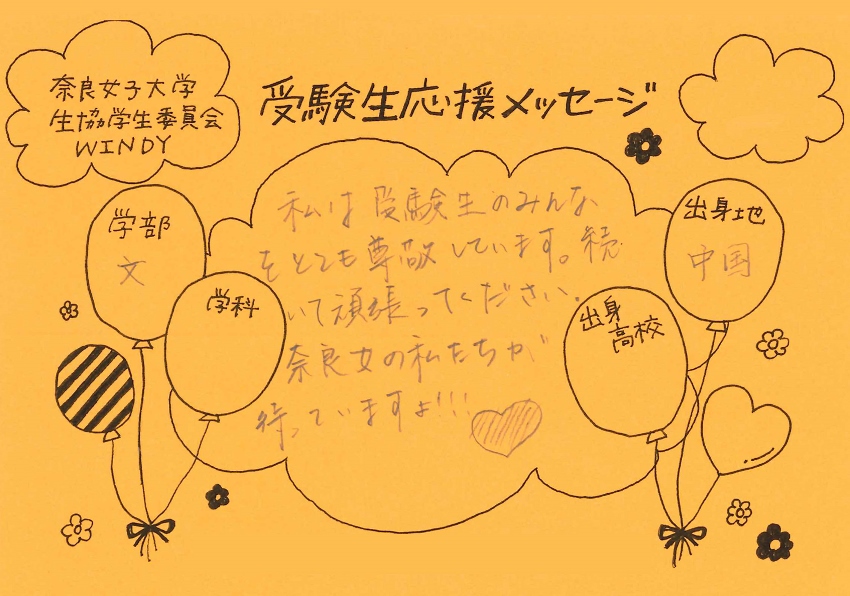 奈良女子大学
生協学生委員会
WINDY
受験生応援メッセージ
学部
文
学科
私は受験生のみんな
をとても尊敬しています。続
いて頑張ってください。
奈良女の私たちが
待っていますよ!!!
出身地
中国
出身
高校